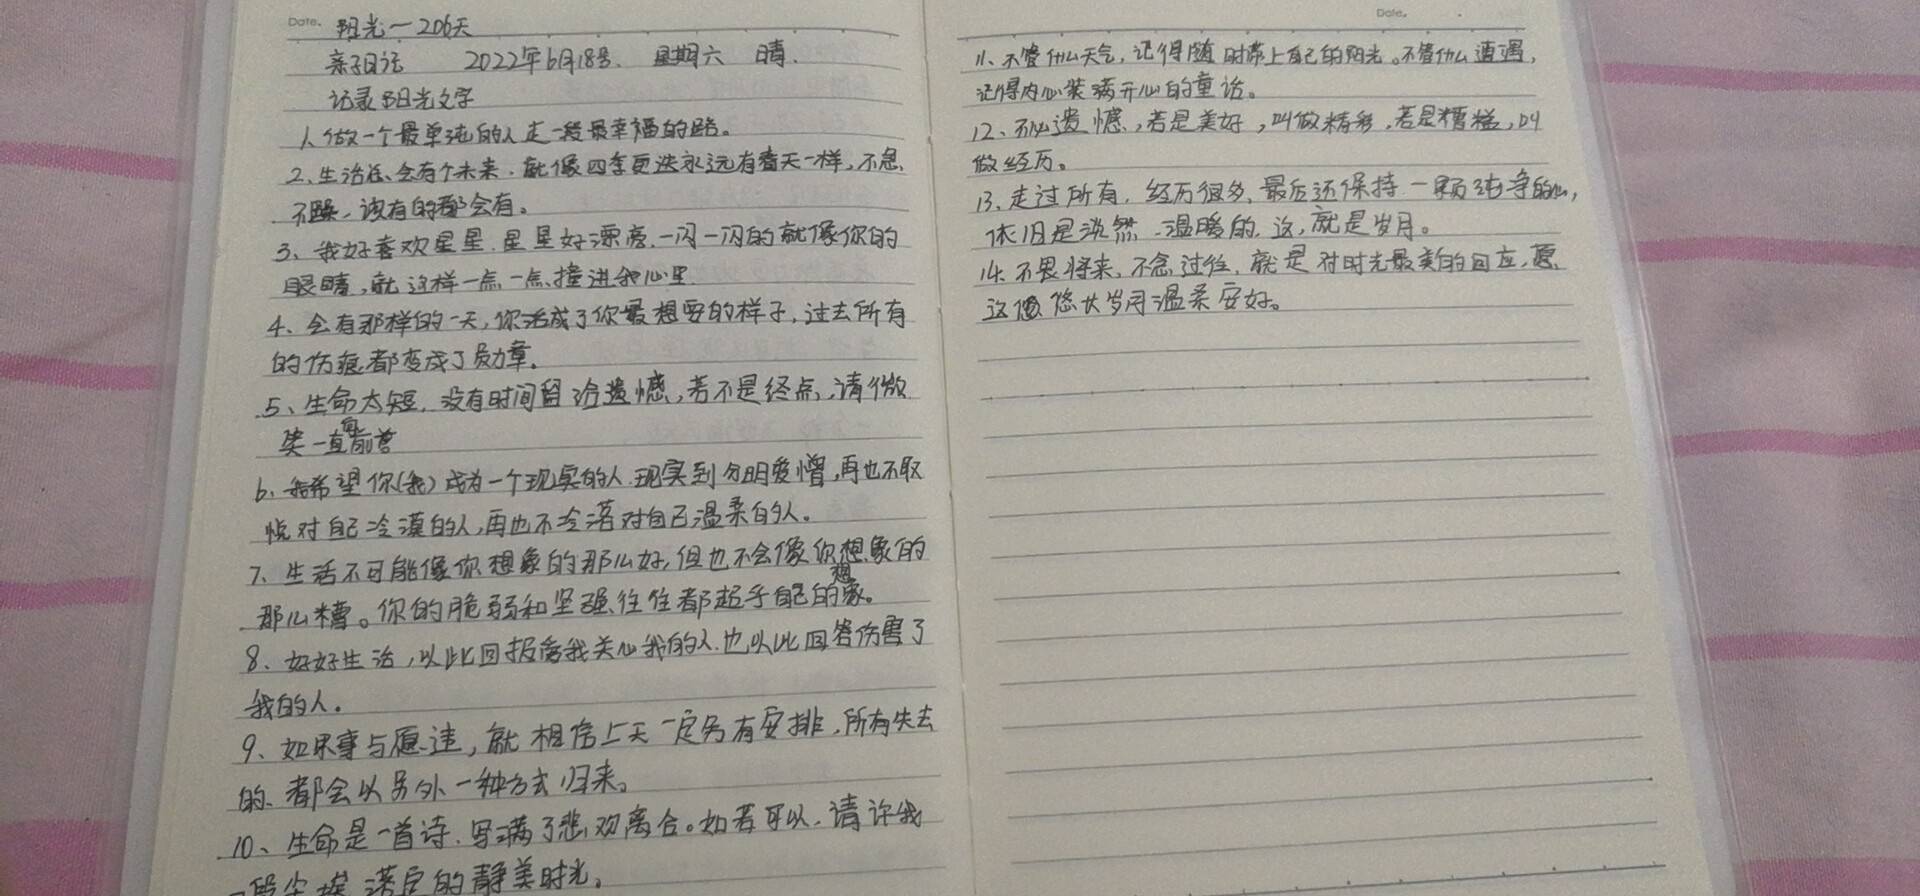 Date. 阳光一206天
亲子日记 2022年6月18号. 星期六 晴.
记录阳光文字
1、做一个最单纯的人走一段最幸福的路。
2、生活总会有个未来.就像四季更迭永远有春天一样,不急、
不躁、该有的都会有。
3、我好喜欢星星.星星好漂亮.一闪一闪的就像你的
眼睛,就这样一点一点撞进我心里
4、会有那样的一天,你活成了你最想要的样子,过去所有
的伤痕都变成了勋章.
5、生命太短.没有时间留给遗憾,若不是终点,请微
笑一直向前
6、我希望你(我)成为一个现实的人.现实到分明爱憎,再也不取
悦对自己冷漠的人,再也不冷落对自己温柔的人。
7、生活不可能像你想象的那么好,但也不会像你想象的
那么糟。你的脆弱和坚强往往都超乎自己的想象。
8、好好生活,以此回报关心我的人.也以此回答伤害了
我的人。
9、如果事与愿违,就相信上天一定另有安排,所有失去
的、都会以另外一种方式归来。
10、生命是一首诗.写满了悲欢离合。如若可以.请许我
一段尘埃落定的静美时光。
Date.
11、不管什么天气,记得随时带上自己的阳光。不管什么遭遇,
记得内心装满开心的童话。
12、不必遗憾,若是美好,叫做精彩.若是糟糕,叫
做经历。
13、走过所有.经历很多、最后还保持一颗纯净的心,
依旧是淡然.温暖的.这,就是岁月。
14.不畏将来,不念过往.就是对时光最美的回应.愿
这悠长岁月温柔安好。